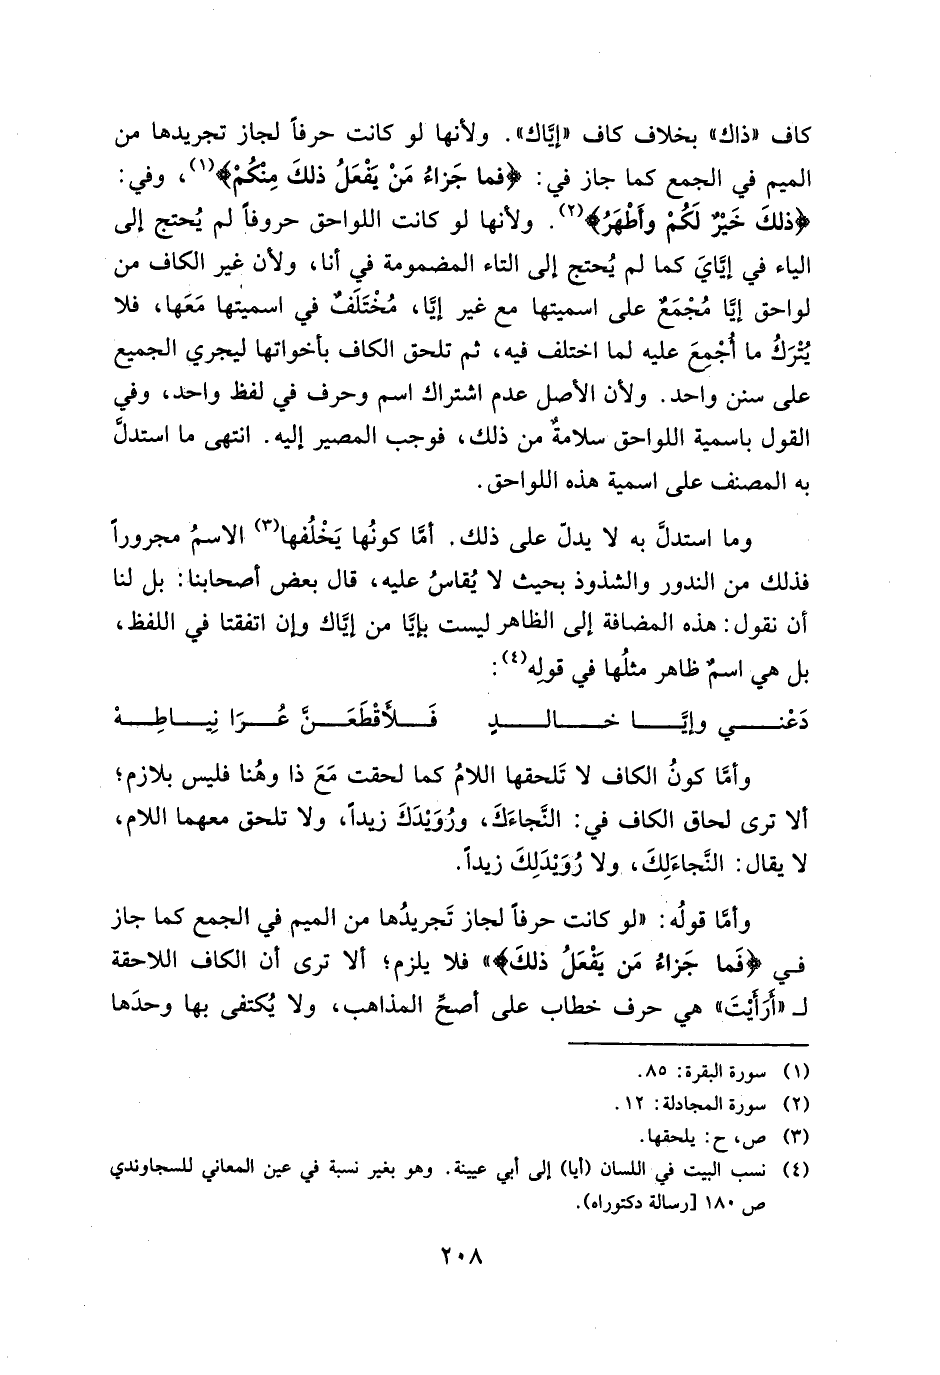 كاف «ذاك» بخلاف كاف «إيَّاك». ولأنها لو كانت حرفاً لجاز تجريدها من
الميم في الجمع كما جاز في: ﴿فما جَزاءُ مَنْ يَفْعَلُ ذلكَ مِنْكُمْ﴾(١)، وفي:
﴿ذلكَ خَيْرٌ لَكُمْ وأَطْهَرُ﴾(٢). ولأنها لو كانت اللواحق حروفاً لم يُحتج إلى
الياء في إيَّايَ كما لم يُحتج إلى التاء المضمومة في أنا، ولأن غير الكاف من
لواحق إيَّا مُجْمَعٌ على اسميتها مع غير إيَّا، مُخْتَلَفٌ في اسميتها مَعَها، فلا
يُتْرَكُ ما أُجْمِعَ عليه لما اختلف فيه، ثم تلحق الكاف بأخواتها ليجري الجميع
على سنن واحد. ولأن الأصل عدم اشتراك اسم وحرف في لفظ واحد، وفي
القول باسمية اللواحق سلامةٌ من ذلك، فوجب المصير إليه. انتهى ما استدلَّ
به المصنف على اسمية هذه اللواحق.
وما استدلَّ به لا يدلّ على ذلك. أمَّا كونُها يَخْلُفها(٣) الاسمُ مجروراً
فذلك من الندور والشذوذ بحيث لا يُقاسُ عليه، قال بعض أصحابنا: بل لنا
أن نقول: هذه المضافة إلى الظاهر ليست بإيَّا من إيَّاك وإن اتفقتا في اللفظ،
بل هي اسمٌ ظاهر مثلُها في قولِه(٤):
دَعْنـي وإيَّـا خـالـدٍ فَـلأَقْطَعَـنَّ عُـرَا نِيـاطِـهْ
وأمَّا كونُ الكاف لا تَلحقها اللامُ كما لحقت مَعَ ذا وهُنا فليس بلازم؛
ألا ترى لحاق الكاف في: النَّجاءَكَ، ورُوَيْدَكَ زيداً، ولا تلحق معهما اللام،
لا يقال: النَّجاءَلِكَ، ولا رُوَيْدَلِكَ زيداً.
وأمَّا قولُه: «لو كانت حرفاً لجاز تَجريدُها من الميم في الجمع كما جاز
في ﴿فَما جَزاءُ مَن يَفْعَلُ ذلكَ﴾» فلا يلزم؛ ألا ترى أن الكاف اللاحقة
لـ «أَرَأَيْتَ» هي حرف خطاب على أصحِّ المذاهب، ولا يُكتفى بها وحدَها
(١) سورة البقرة: ٨٥.
(٢) سورة المجادلة: ١٢.
(٣) ص، ح: يلحقها.
(٤) نسب البيت في اللسان (أيا) إلى أبي عيينة. وهو بغير نسبة في عين المعاني للسجاوندي
ص ١٨٠ [رسالة دكتوراه).
٢٠٨